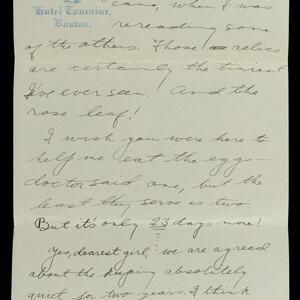 Hotel Touraine,
Boston.
came, when I was
rereading some
of the others. Those relics
are certainly the tiniest
I've ever seen! And the
rose leaf!
I wish you were here to
help me eat the egg-
doctor said one, but the
least they serve is two.
But it's only 23 days more!
Yes, dearest girl, we are agreed
about the keeping absolutely
quiet for two years. I think